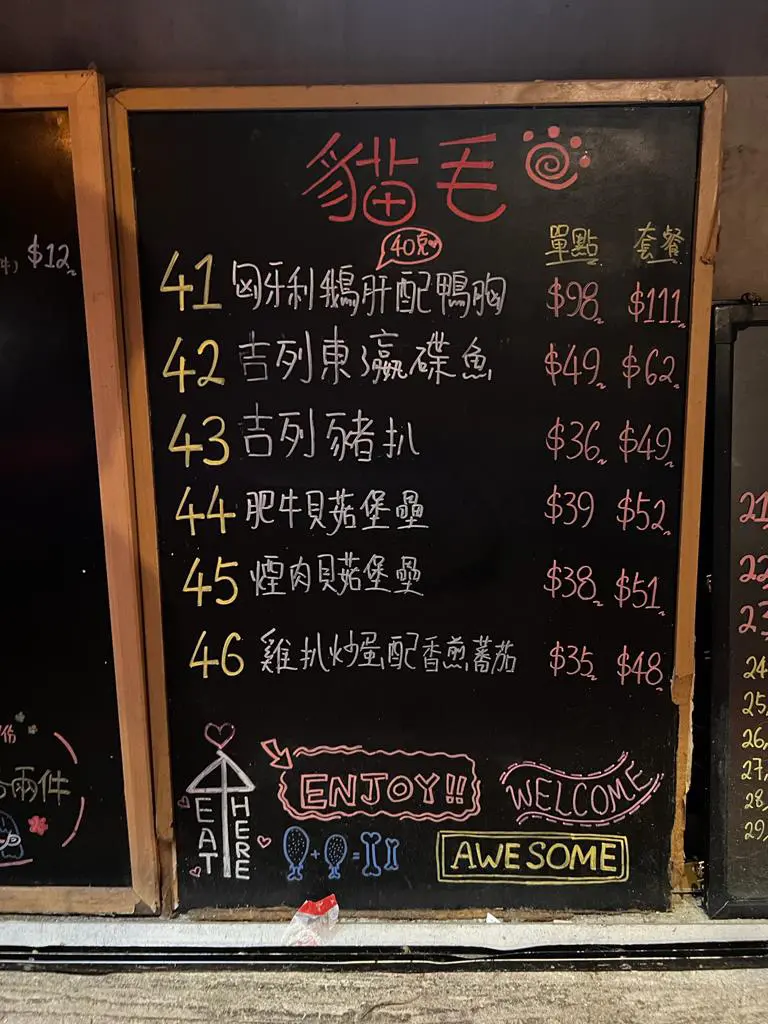 貓毛
單點 套餐
40克
41 匈牙利鵝肝配鴨胸 $98 $111
42 吉列東瀛碟魚 $49 $62
43 吉列豬扒 $36 $49
44 肥牛貝菇堡壘 $39 $52
45 煙肉貝菇堡壘 $38 $51
46 雞扒炒蛋配香煎蕃茄 $35 $48
EAT HERE
ENJOY!!
WELCOME
AWESOME
$12
兩件
21
22
23
24
25
26
27
28
29